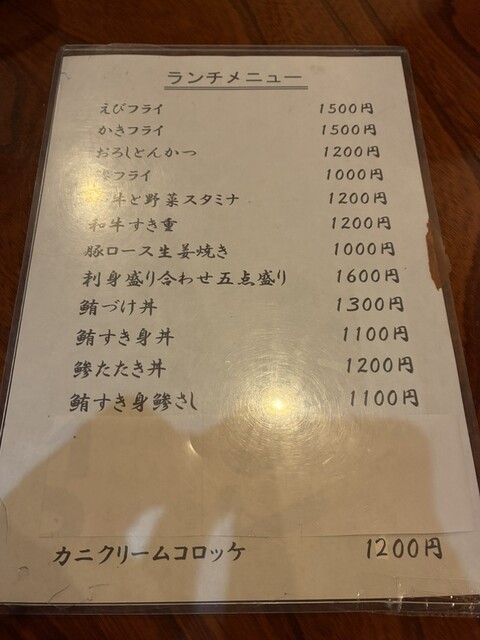 ランチメニュー
えびフライ 1500円
かきフライ 1500円
おろしとんかつ 1200円
フライ 1000円
牛と野菜スタミナ 1200円
和牛すき重 1200円
豚ロース生姜焼き 1000円
刺身盛り合わせ五点盛り 1600円
鮪づけ丼 1300円
鮪すき身丼 1100円
鯵たたき丼 1200円
鮪すき身鯵さし 1100円
カニクリームコロッケ 1200円